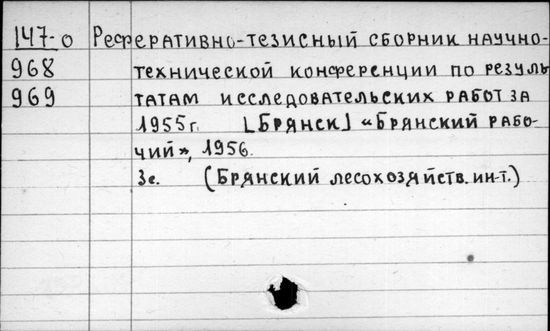 147-о Реферативно-тезисный сборник научно-
968 технической конференции по резуль
969 татам исследовательских работ за
1955г. [Брянск] «Брянский рабо-
чий», 1956.
3с. (Брянский лесохозяйств. ин-т.)